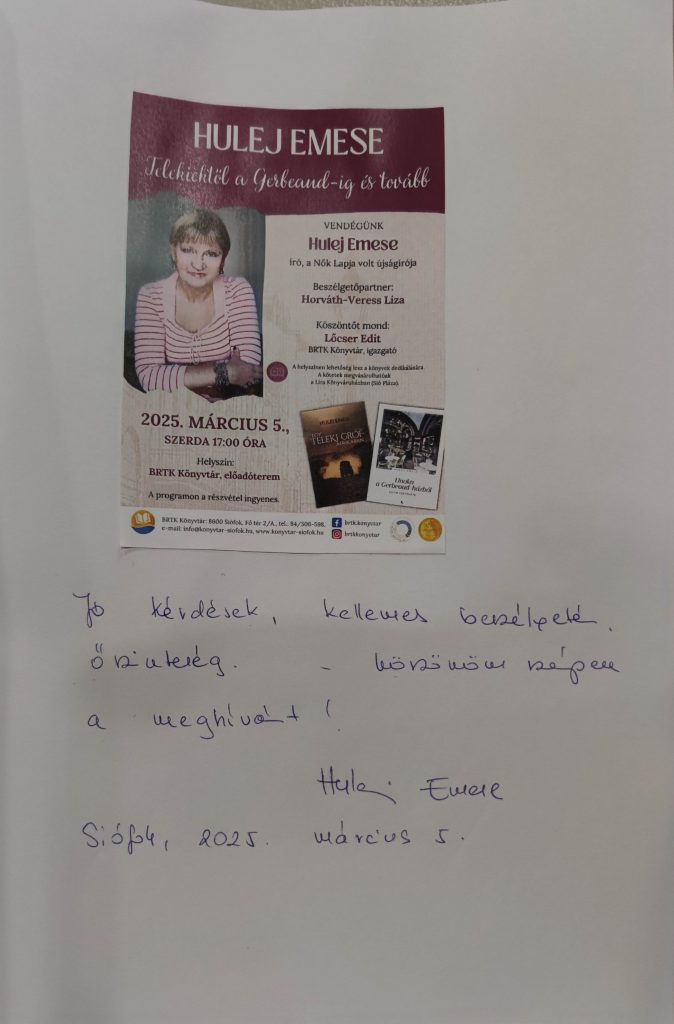 HULEJ EMESE
Telekiektől a Gerbeaud-ig és tovább
VENDÉGÜNK
Hulej Emese
író, a Nők Lapja volt újságírója
Beszélgetőpartner:
Horváth-Veress Liza
Köszöntőt mond:
Lőcser Edit
BRTK Könyvtár, igazgató
A helyszínen lehetőség lesz a könyvek dedikálására.
A kötetek megvásárolhatóak
a Líra Könyváruházban (Sió Pláza).
2025. MÁRCIUS 5.,
SZERDA 17:00 ÓRA
Helyszín:
BRTK Könyvtár, előadóterem
A programon a részvétel ingyenes.
HULEJ EMESE
EGY
TELEKI GRÓF
AFRIKÁBAN
Unoka
a Gerbeaud házból
BRTK Könyvtár: 8600 Siófok, Fő tér 2/A., tel.: 84/506-598,
e-mail: info@konyvtar-siofok.hu, www.konyvtar-siofok.hu
brtk.konyvtar
brtkkonyvtar
Jó kérdések, kellemes beszélgetés,
őszinteség. – köszönöm szépen
a meghívást!
Hulej Emese
Siófok, 2025. március 5.